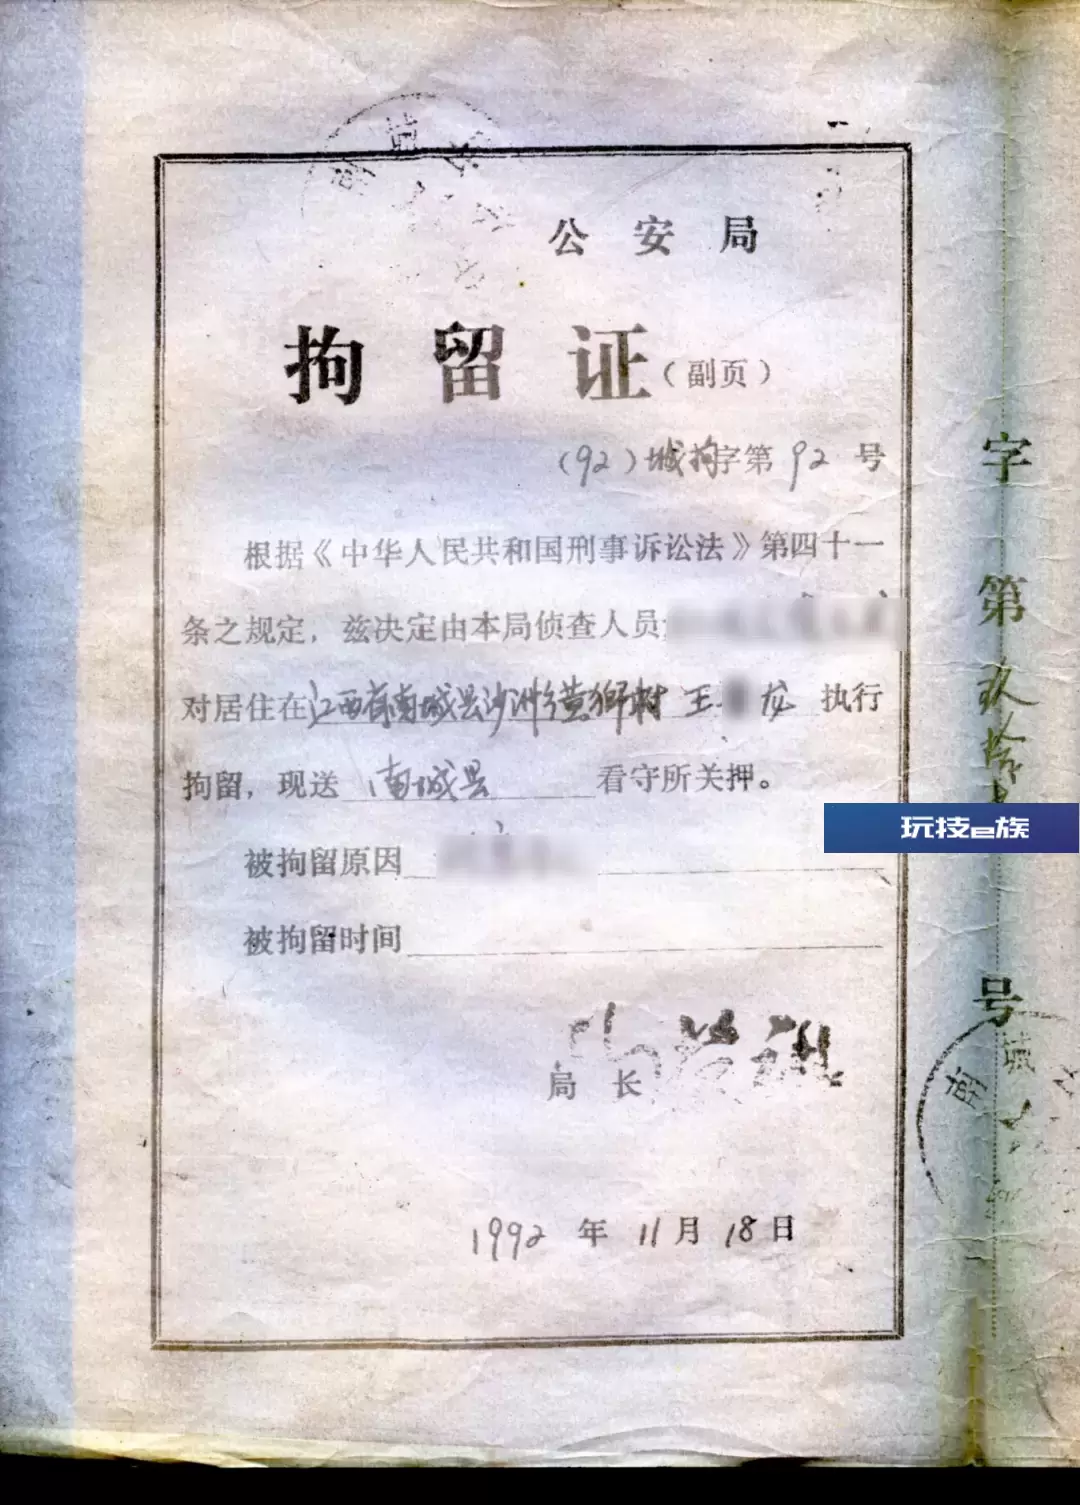 公安局
拘留证（副页）
（92）城拘字第92号
根据《中华人民共和国刑事诉讼法》第四十一
条之规定，兹决定由本局侦查人员
对居住在江西省南城县沙洲 村 王 龙 执行
拘留，现送 南城县 看守所关押。
被拘留原因
被拘留时间
局长
1992年11月18日
字第玖拾 号
南城
玩技e族